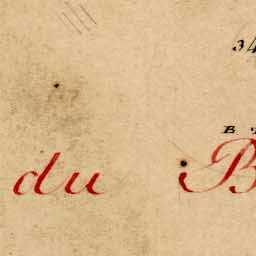 34
B
du B